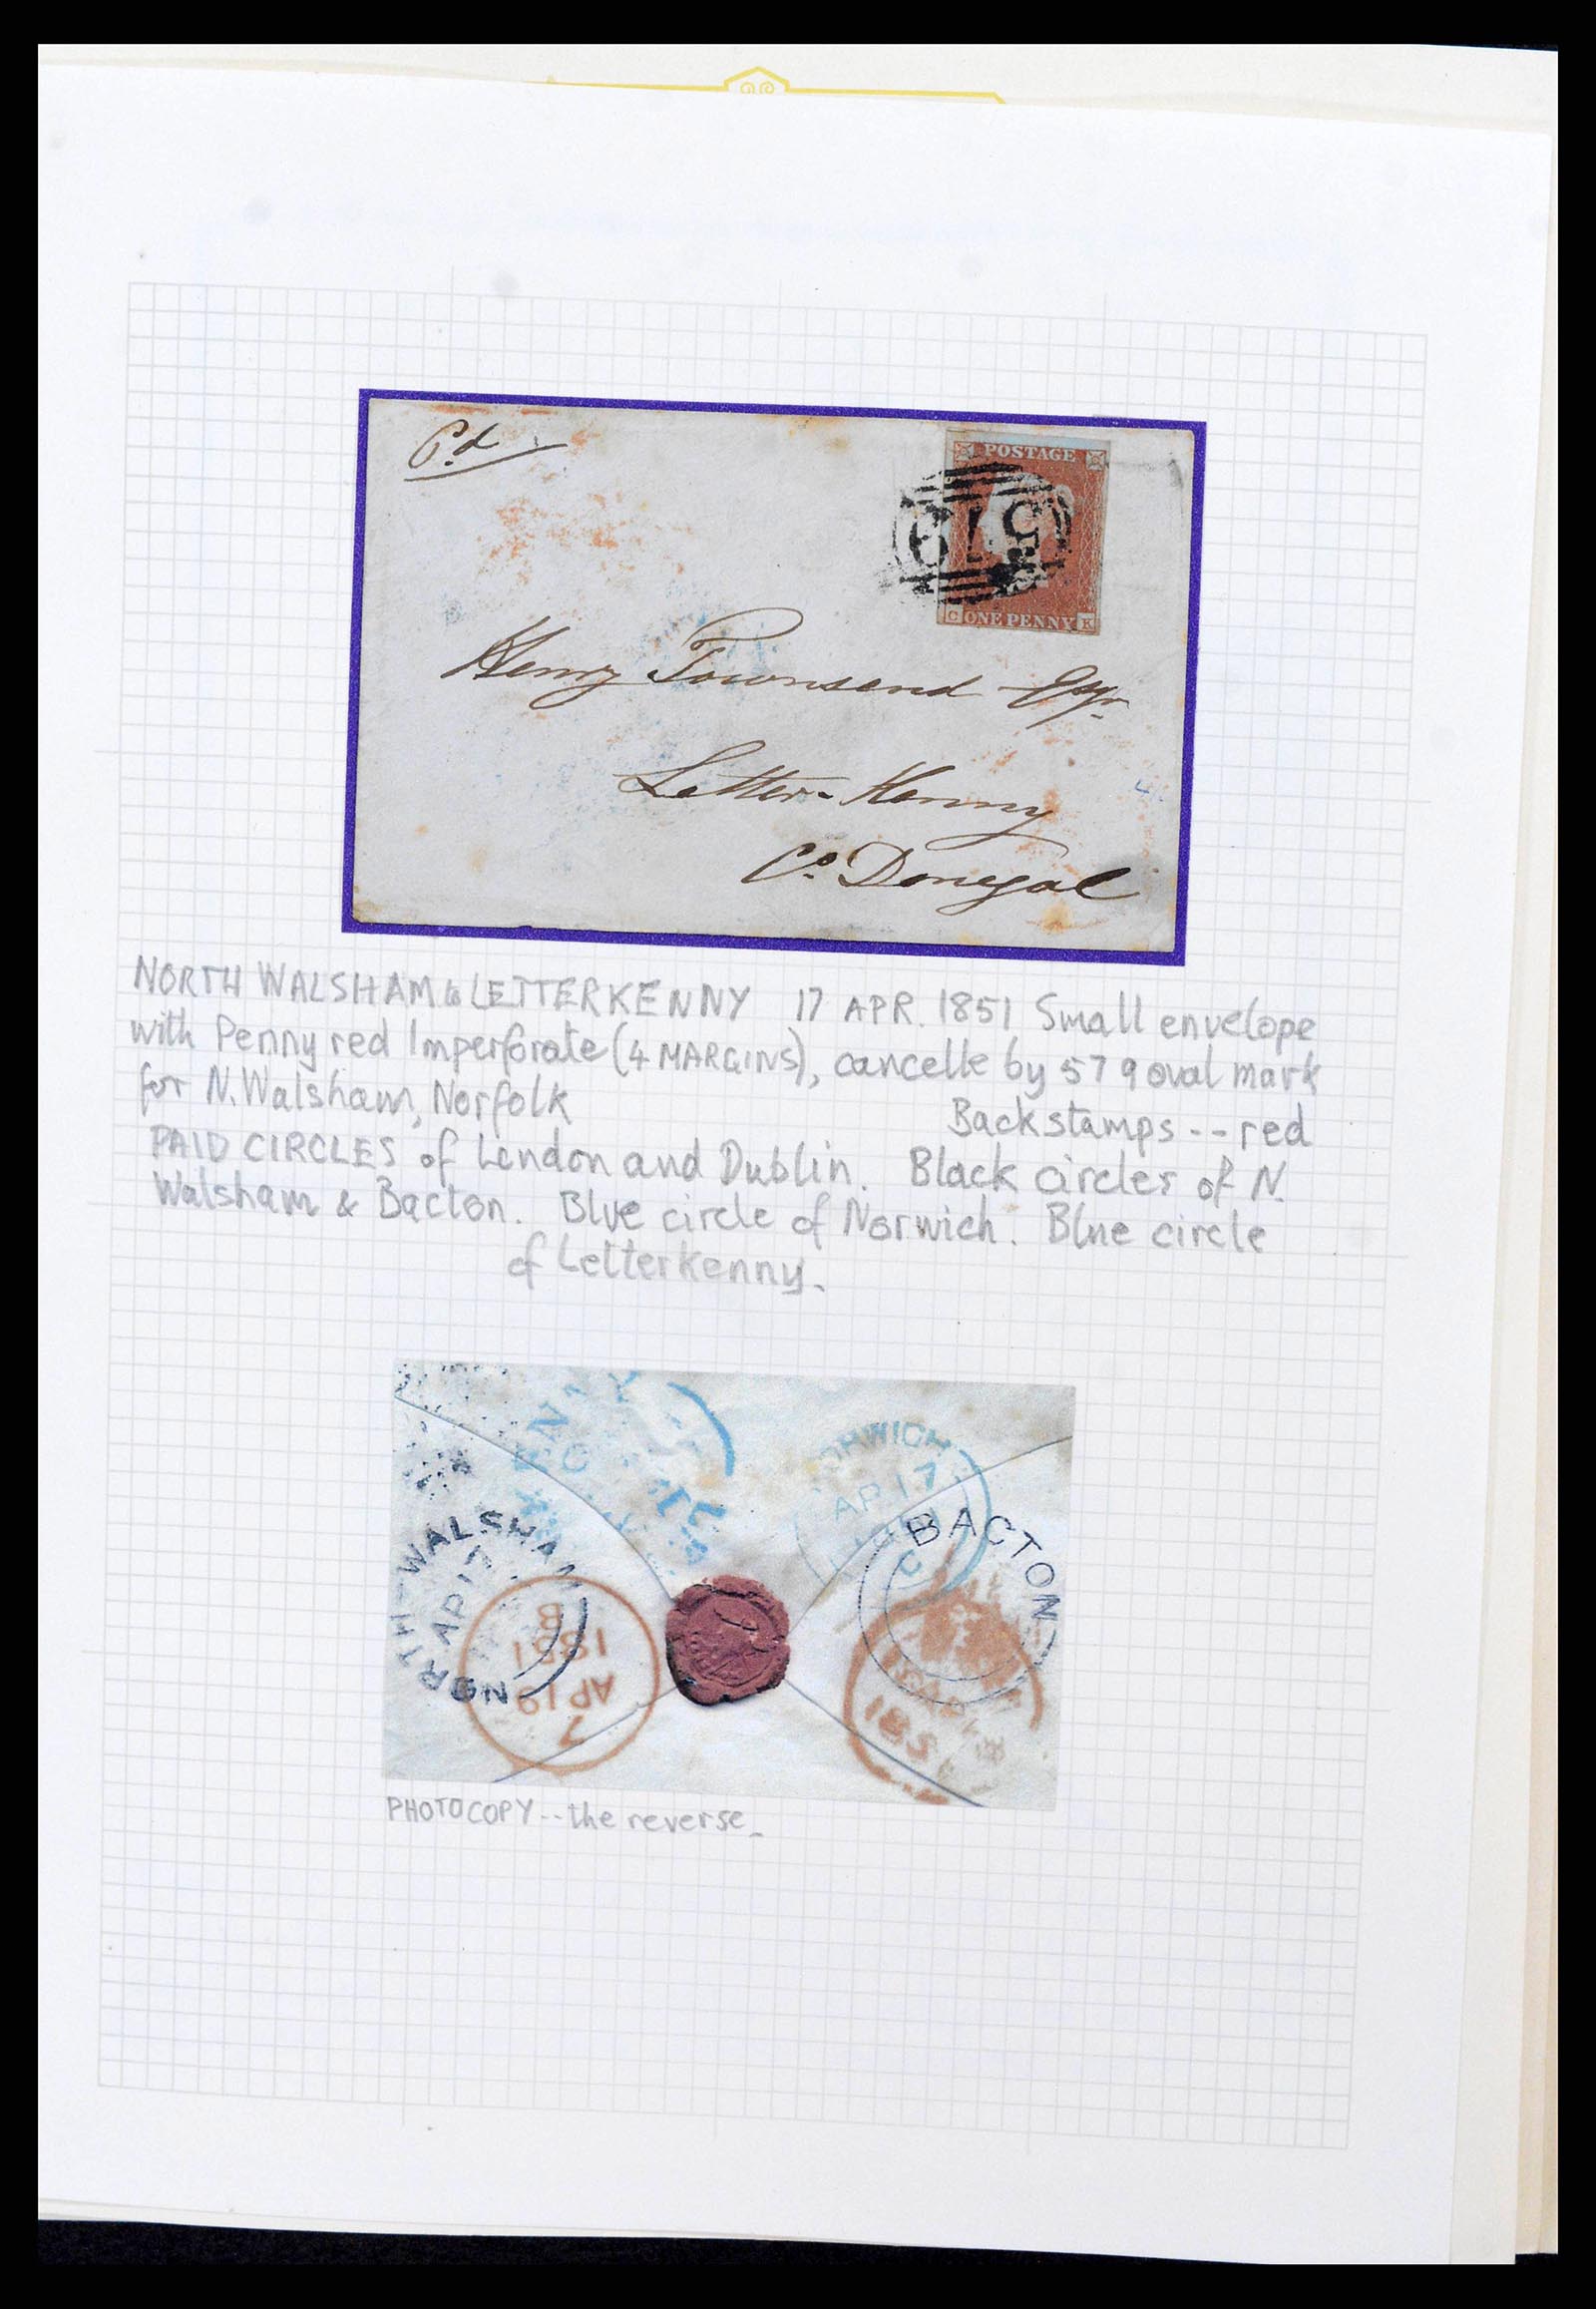 Pd
POSTAGE
579
C ONE PENNY K
Henry Townsend Esqr.
Letter-Kenny
Co. Donegal
NORTH WALSHAM to LETTERKENNY 17 APR. 1851 Small envelope
with Penny red Imperforate (4 MARGINS), cancelle by 579 oval mark
for N. Walsham, Norfolk Backstamps -- red
PAID CIRCLES of London and Dublin. Black circles of N.
Walsham & Bacton. Blue circle of Norwich. Blue circle
of Letterkenny.
NORWICH
AP 17
BACTON
NORTH-WALSHAM
AP 17
7
AP 19
1851
B
185
PHOTOCOPY -- the reverse_